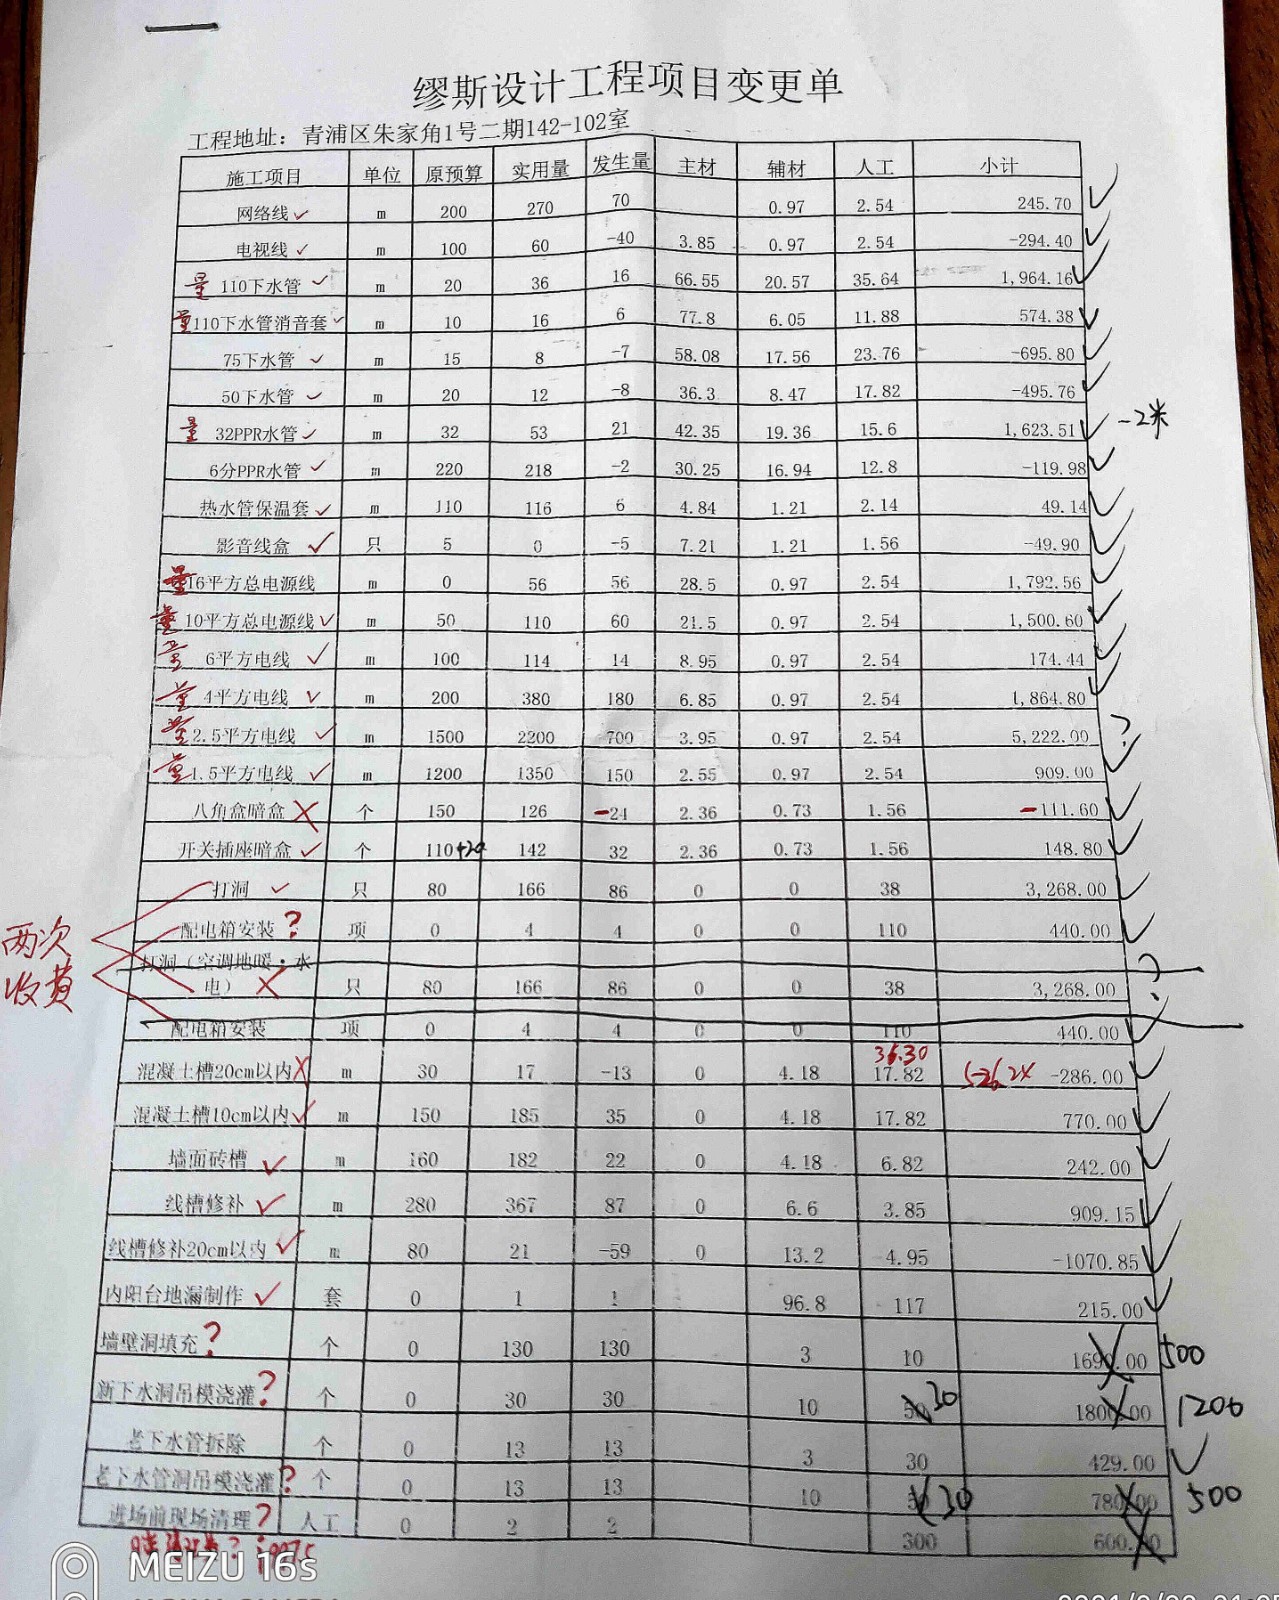 缪斯设计工程项目变更单
工程地址：青浦区朱家角1号二期142-102室
施工项目 单位 原预算 实用量 发生量 主材 辅材 人工 小计
网络线 m 200 270 70 0.97 2.54 245.70
电视线 m 100 60 -40 3.85 0.97 2.54 -294.40
量 110下水管 m 20 36 16 66.55 20.57 35.64 1,964.16
量 110下水管消音套 m 10 16 6 77.8 6.05 11.88 574.38
75下水管 m 15 8 -7 58.08 17.56 23.76 -695.80
50下水管 m 20 12 -8 36.3 8.47 17.82 -495.76
量 32PPR水管 m 32 53 21 42.35 19.36 15.6 1,623.51 -2米
6分PPR水管 m 220 218 -2 30.25 16.94 12.8 -119.98
热水管保温套 m 110 116 6 4.84 1.21 2.14 49.14
影音线盒 只 5 0 -5 7.21 1.21 1.56 -49.90
量 16平方总电源线 m 0 56 56 28.5 0.97 2.54 1,792.56
量 10平方总电源线 m 50 110 60 21.5 0.97 2.54 1,500.60
量 6平方电线 m 100 114 14 8.95 0.97 2.54 174.44
量 4平方电线 m 200 380 180 6.85 0.97 2.54 1,864.80
量 2.5平方电线 m 1500 2200 700 3.95 0.97 2.54 5,222.00 ?
量 1.5平方电线 m 1200 1350 150 2.55 0.97 2.54 909.00
八角盒暗盒 个 150 126 -24 2.36 0.73 1.56 -111.60
开关插座暗盒 个 110+20 142 32 2.36 0.73 1.56 148.80
打洞 只 80 166 86 0 0 38 3,268.00
两次收费
配电箱安装? 项 0 4 4 0 0 110 440.00
打洞（空调地暖·水电） 只 80 166 86 0 0 38 3,268.00 ?
配电箱安装 项 0 4 4 0 0 110 440.00
混凝土槽20cm以内 m 30 17 -13 0 4.18 36.30 17.82 526.24 -286.00
混凝土槽10cm以内 m 150 185 35 0 4.18 17.82 770.00
墙面砖槽 m 160 182 22 0 4.18 6.82 242.00
线槽修补 m 280 367 87 0 6.6 3.85 909.15
线槽修补20cm以内 m 80 21 -59 0 13.2 4.95 -1070.85
内阳台地漏制作 套 0 1 1 96.8 117 215.00
墙壁洞填充? 个 0 130 130 3 10 1690.00 500
新下水洞吊模浇灌? 个 0 30 30 10 50 30 1800.00 1200
老下水管拆除 个 0 13 13 3 30 429.00
老下水管洞吊模浇灌? 个 0 13 13 10 50 30 780.00 500
进场前现场清理? 人工 0 2 2 300 600.00
MEIZU 16s